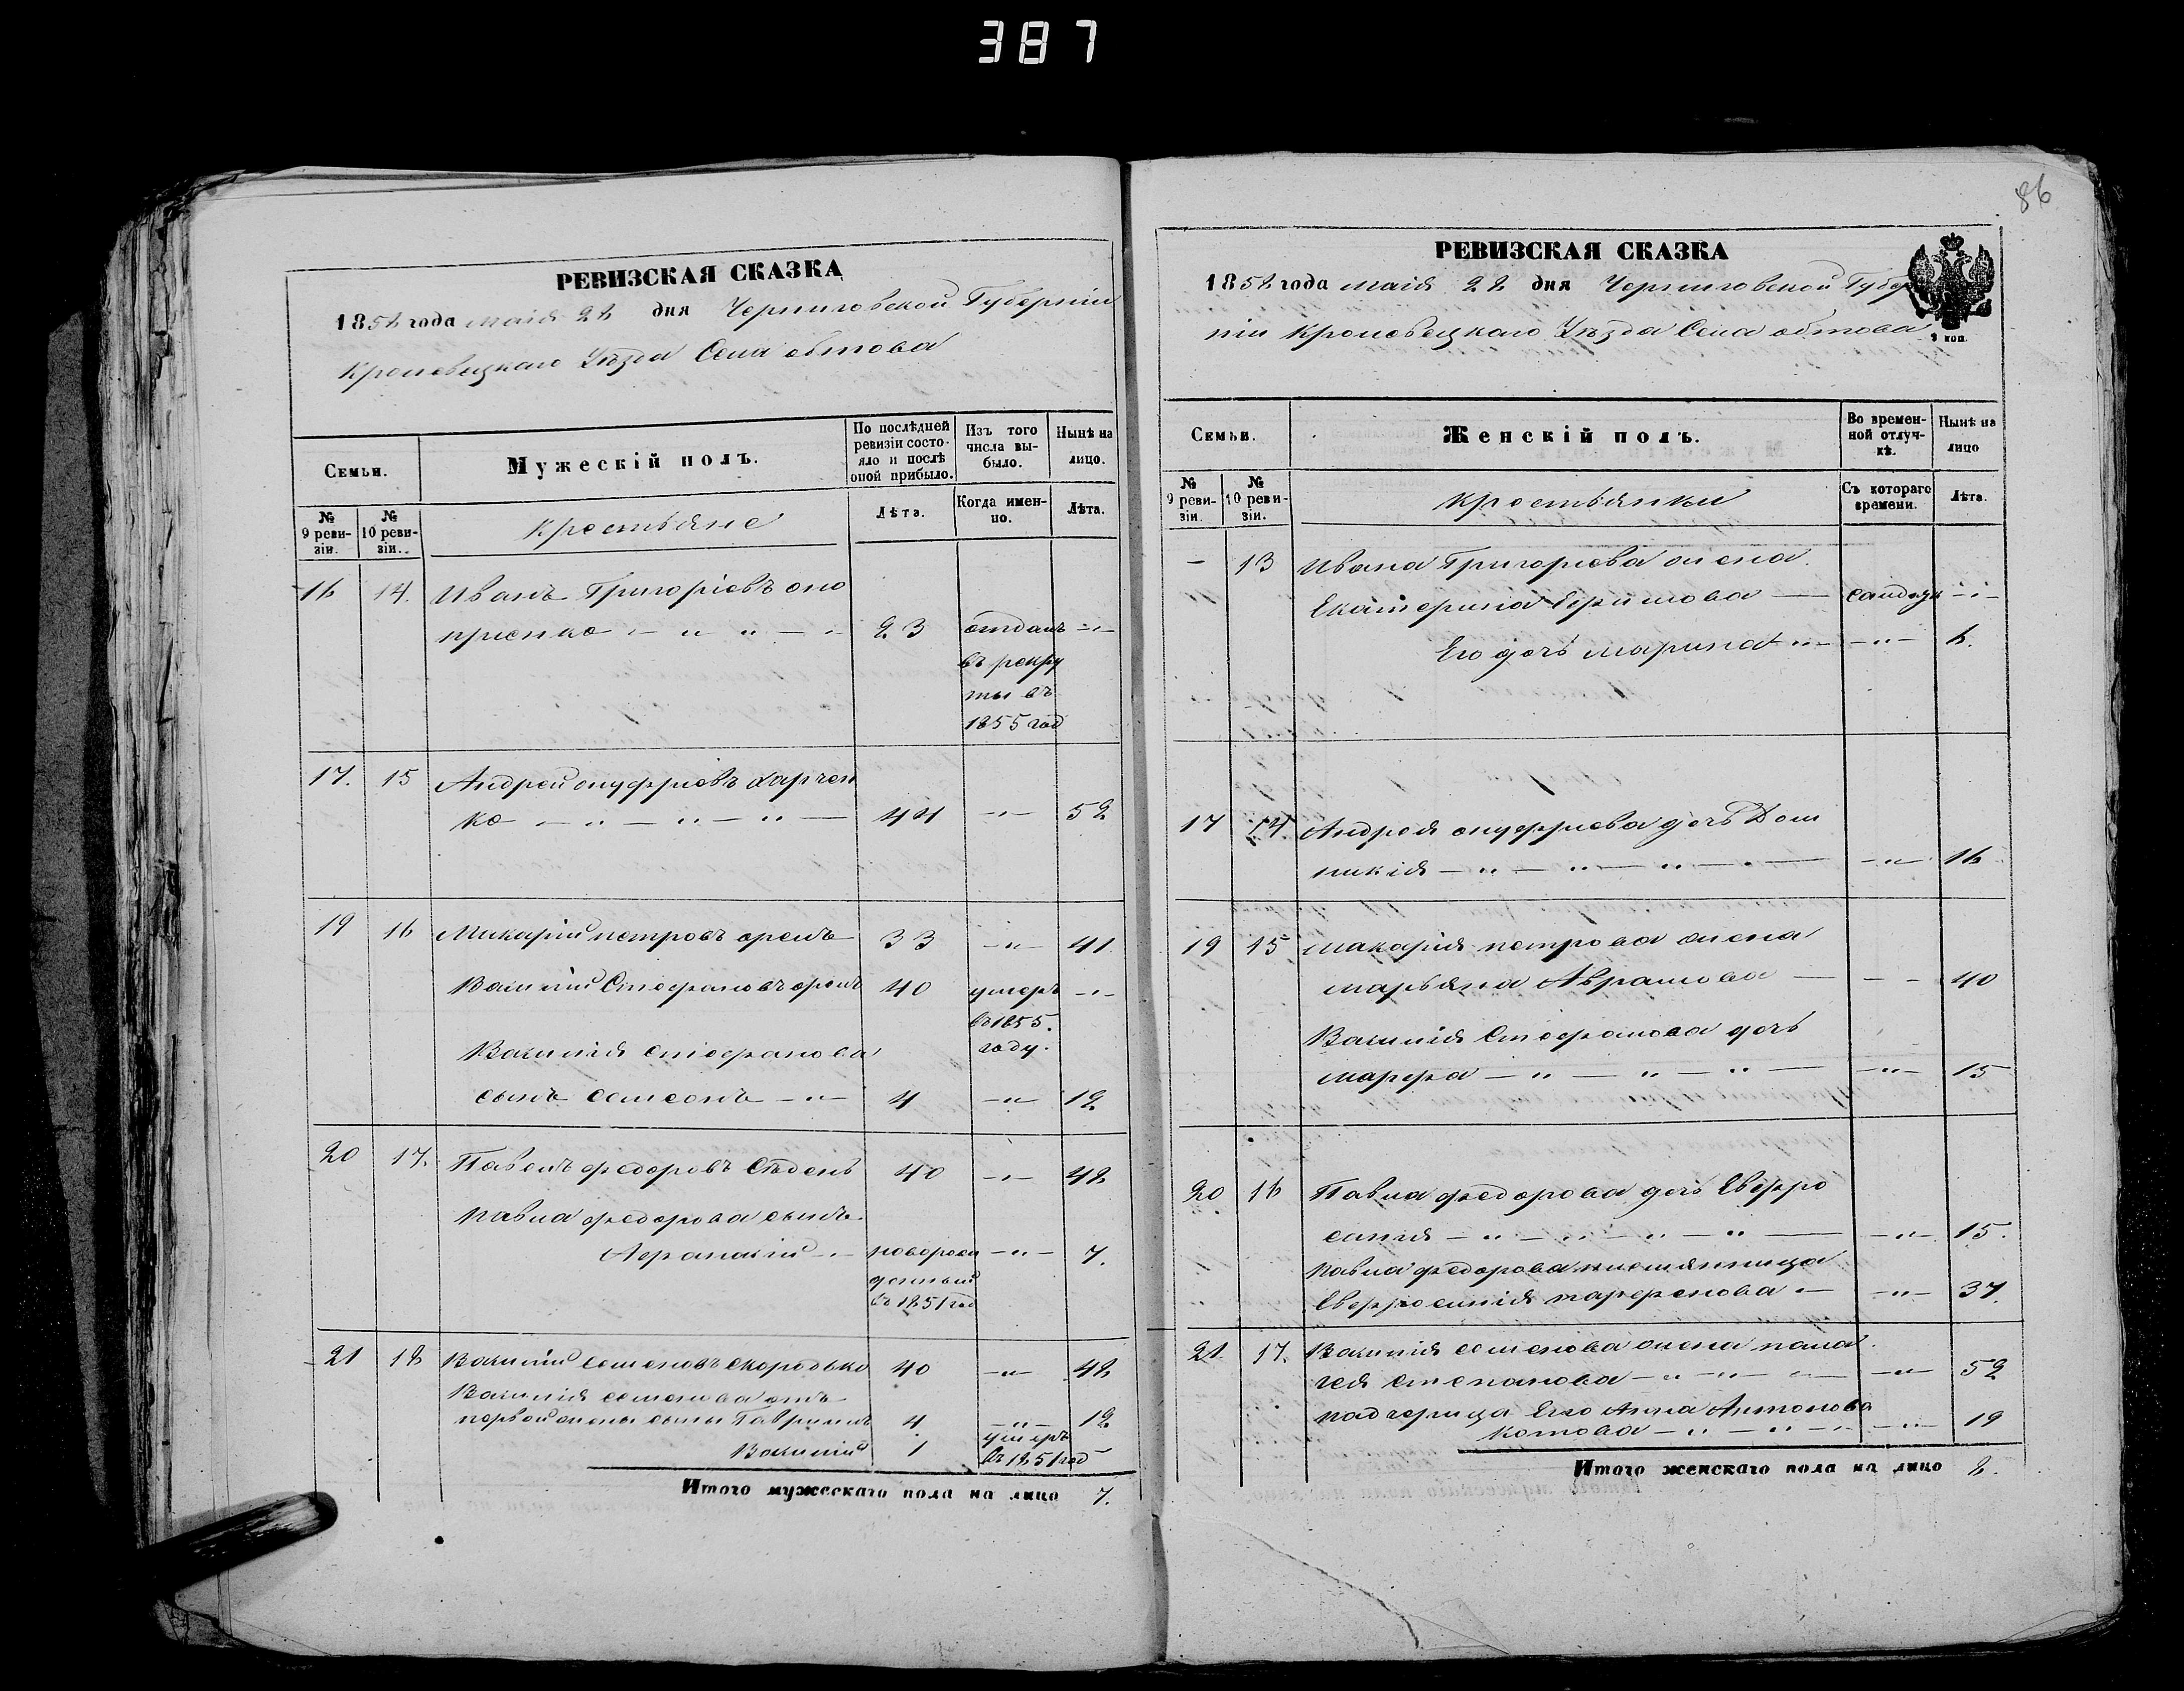 387
86
РЕВИЗСКАЯ СКАЗКА
1858 года маія 28 дня Черниговской Губерніи
Кролевецкаго Уѣзда Села Обтова
Семьи.
Мужескій полъ.
По послѣдней ревизіи состояло и послѣ оной прибыло.
Изъ того числа выбыло.
Нынѣ на лицо.
№ 9 ревизіи.
№ 10 ревизіи.
Крестьяне
Лѣта.
Когда именно.
Лѣта.
16 14. Иванъ Григоріевъ оно
приенко 23 отданъ
въ рекру
ты въ
1855 год
17. 15 Андрей онуфріевъ Харчен
ко 44 52
19 16 Макарій петровъ орелъ 33 41
Василій Стефановъ орелъ 40 умеръ
въ 1855.
году.
Василія Стефанова
сынъ Семенъ 4 12
20 17. Павелъ федоровъ Сѣдень 40 48
Павла федорова сынъ
Афанасій новорож 7.
денный
въ 1851 год
21 18 Василій семеновъ Скородько 40 48
Василія семенова отъ
первой жены сыны Гаврила 4 12
Василій 1 умеръ
въ 1851 год
Итого мужескаго пола на лицо 7.
РЕВИЗСКАЯ СКАЗКА
1858 года маія 28 дня Черниговской Губер
ніи Кролевецкаго Уѣзда Села обтова
Семьи.
Женскій полъ.
Во временной отлучкѣ.
Нынѣ на лицо
№ 9 ревизіи.
№ 10 ревизіи.
Крестьянки
Съ котораго времени.
Лѣта.
13 Ивана Григорієва жена
Екатерина
Его дочь Марина 8.
17 14. Андрея онуфриева дочь Дом
никія 16
19 15 Макарія петрова жена
марьяна Абрамова 40
Василія Стефанова дочь
марфа 15
20 16 Павла федорова дочь Евфро
синія 15.
Павла федорова племянница
Евфросинія парфенова 37.
21 17. Василія семенова жена пала
гея степанова 52
падчерица Его Анна Антонова
Котова 19
Итого женскаго пола на лицо 8.